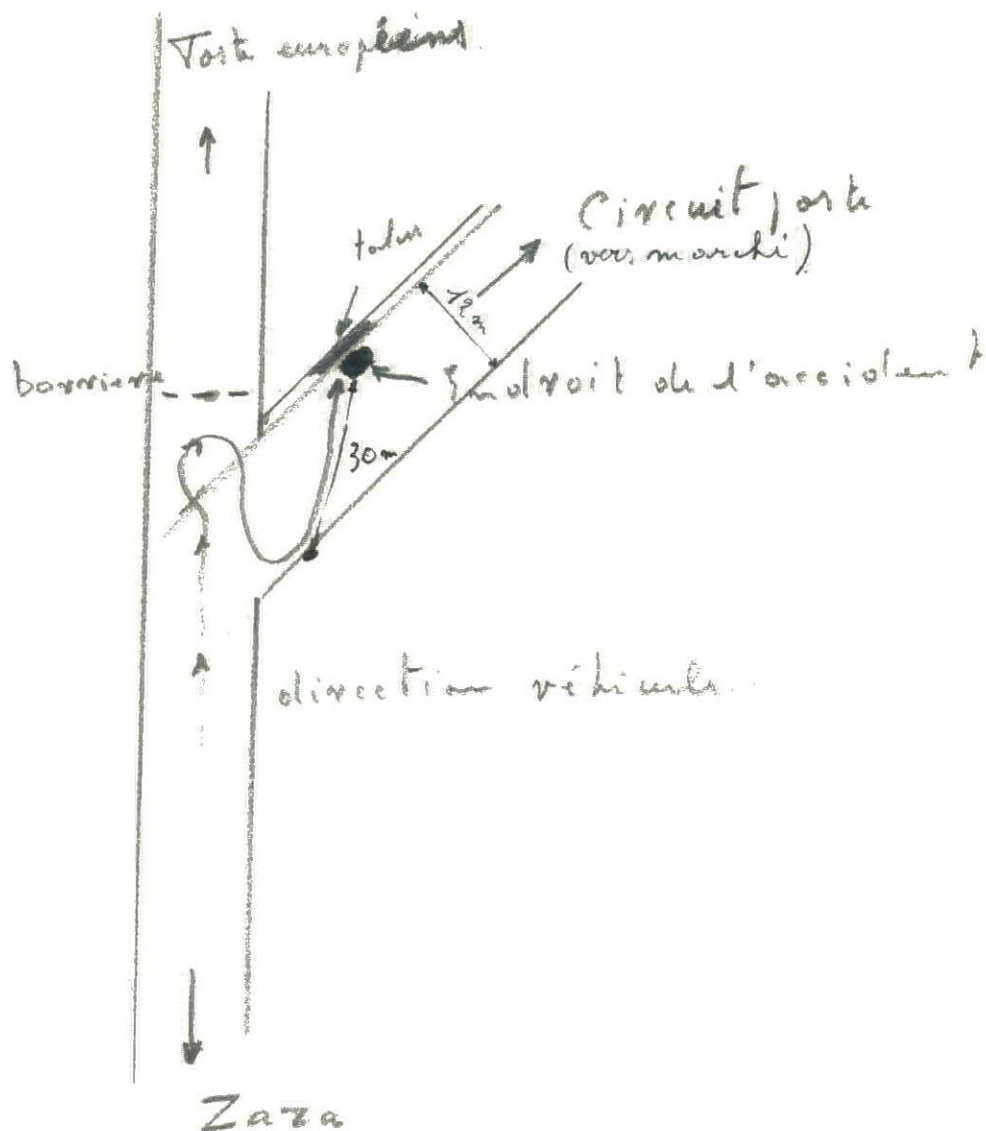 Poste européens
talus
Circuit poste
(vers marché)
12m
barriere
Endroit de l'accident
30m
direction véhicule
Zaza